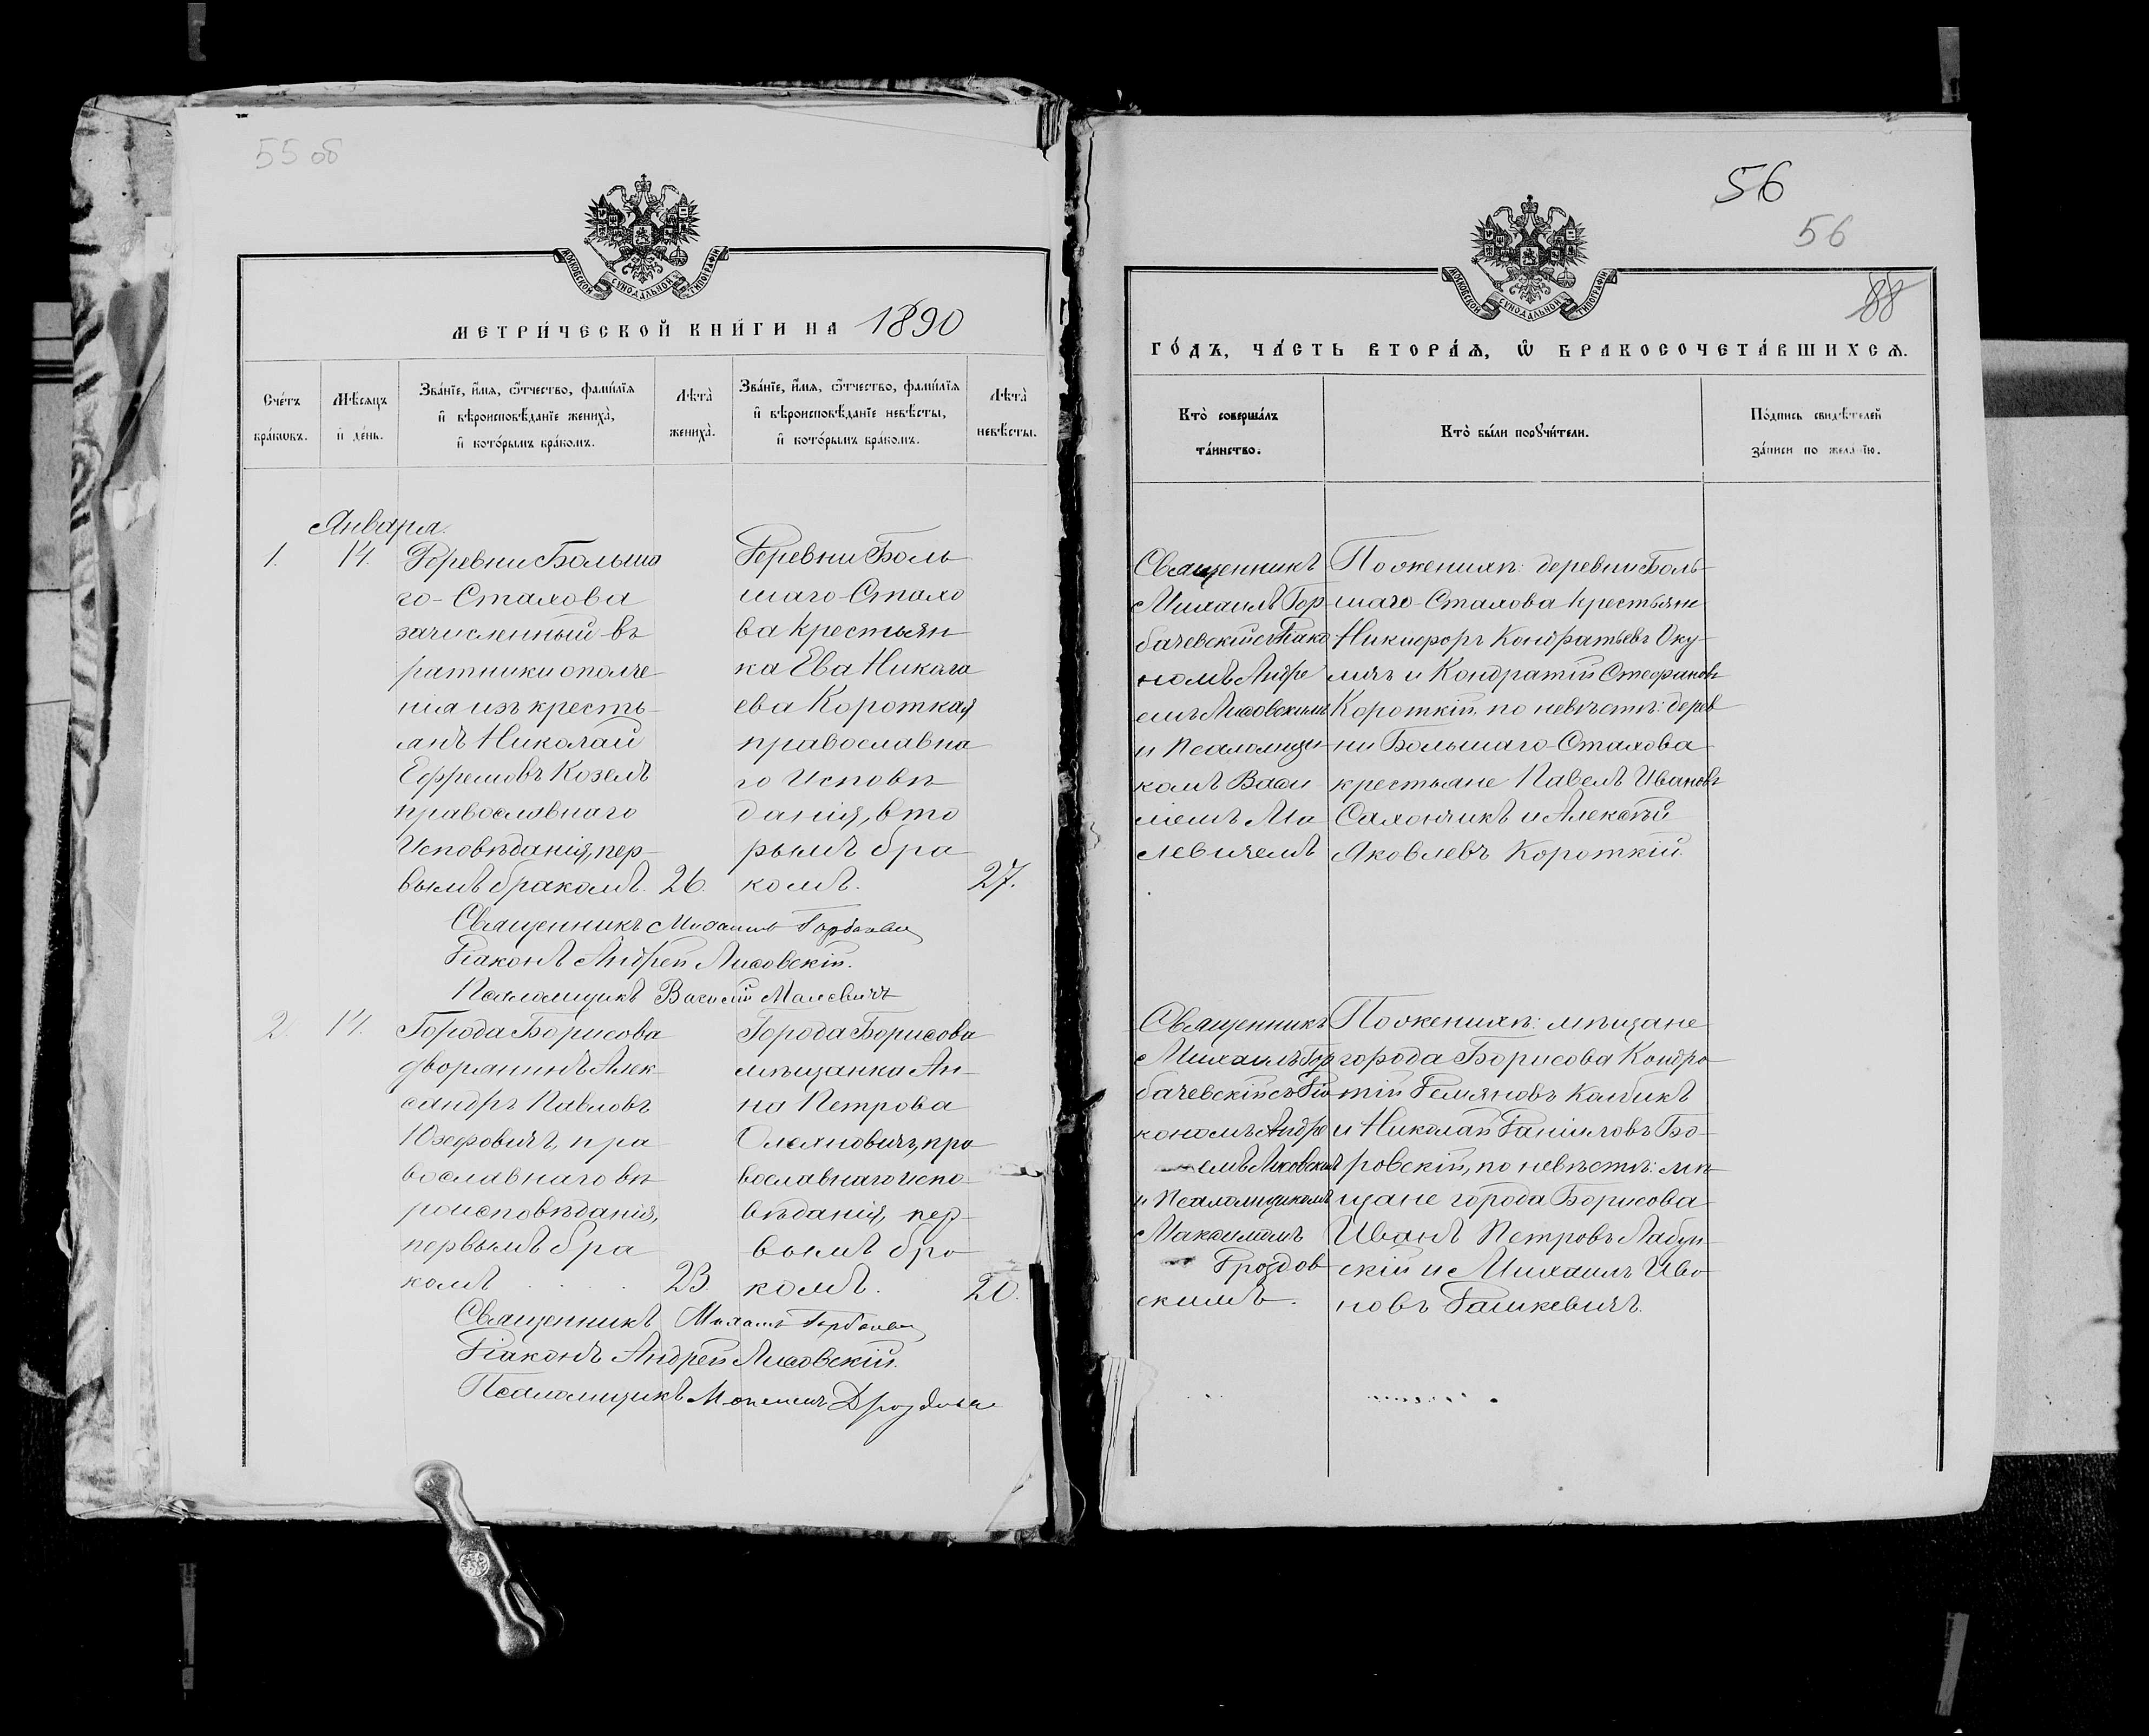 55 об
МОСКОВСКОЙ СУНОДАЛЬНОЙ ТИПОГРАФІИ
МЕТРИ́ЧЕСКОЙ КНИ́ГИ НА 1890
Сче́тъ бра́кωвъ.
Мѣ́сяцъ и҆ де́нь.
Зва́нїе, и҆́мя, ѻ҆́тчество, фами́лїя и҆ вѣроисповѣ́данїе жениха̀, и҆ кото́рымъ бра́комъ.
Лѣта̀ жениха̀.
Зва́нїе, и҆́мя, ѻ҆́тчество, фами́лїя и҆ вѣроисповѣ́данїе невѣ́сты, и҆ кото́рымъ бра́комъ.
Лѣта̀ невѣ́сты.
Января
1.
14.
Деревни Больша
го-Стахова
зачисленный въ
ратники ополче
нія изъ кресть-
янъ Николай
Ефремовъ Козелъ
православнаго
Исповѣданія, пер-
вымъ бракомъ.
26.
Деревни Боль
шаго-Стахо
ва крестьян
ка Ева Никола
ева Короткая
православна
го Исповѣ
данія, вто
рымъ бра
комъ.
27.
Священникъ Михаилъ
Діаконъ Андрей Лисовскій.
Псаломщикъ Василій Малевичъ
2.
14.
Города Борисова
дворянинъ Алек-
сандръ Павловъ
Юзефовичъ, пра
вославнаго вѣ
роисповѣданія,
первымъ бра
комъ
23.
Города Борисова
мѣщанка Ан-
на Петрова
Олехновичъ, пра
вославнаго испо-
вѣданія, пер-
вымъ бра
комъ.
20.
Священникъ Михаилъ
Діаконъ Андрей Лисовскій.
Псаломщикъ
56
56
88
МОСКОВСКОЙ СУНОДАЛЬНОЙ ТИПОГРАФІИ
ГО́ДЪ, ЧА́СТЬ ВТОРА́Я, Ѽ БРАКОСОЧЕТА́ВШИХСЯ.
Кто̀ соверша́лъ та́инство.
Кто̀ бы́ли порꙋчи́тели.
По́дпись свидѣ́телей за́писи по жела́нїю.
Священникъ
Михаилъ Гор
бачевскій съ Діако
номъ Андре
емъ Лисовскимъ
и Псаломщи
комъ Васи
ліемъ Ма
левичемъ
По женихѣ: деревни Боль-
шаго-Стахова крестьяне
Никифоръ Кондратьевъ Оку-
личъ и Кондратій Стефановъ
Короткій, по невѣстѣ: дерев
ни Большаго-Стахова
крестьяне Павелъ Ивановъ
Сахончикъ и Алексѣй
Яковлевъ Короткій.
Священникъ
Михаилъ Гор
бачевскій съ Діа
кономъ Андре
емъ Лисовскимъ
и Псаломщикомъ
Максимомъ
Дроздов
скимъ.
По женихѣ: мѣщане
города Борисова Кондра
тій Демяновъ Калбикъ
и Николай Даніиловъ Бо-
ровскій, по невѣстѣ: мѣ
щане города Борисова
Иванъ Петровъ Лабун
скій и Михаилъ Ива
новъ Дашкевичъ.